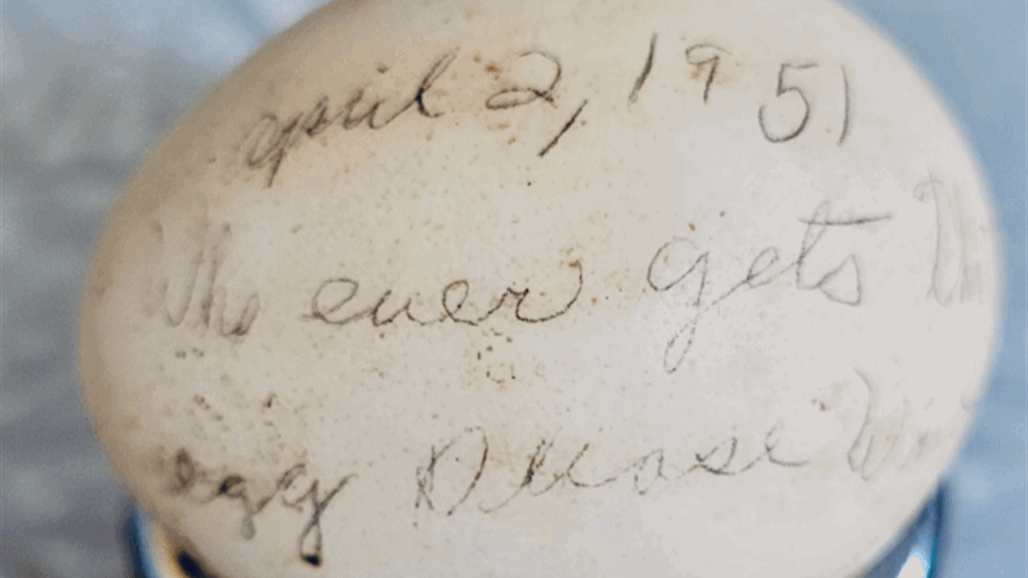 April 2, 1951
Who ever gets
egg Please